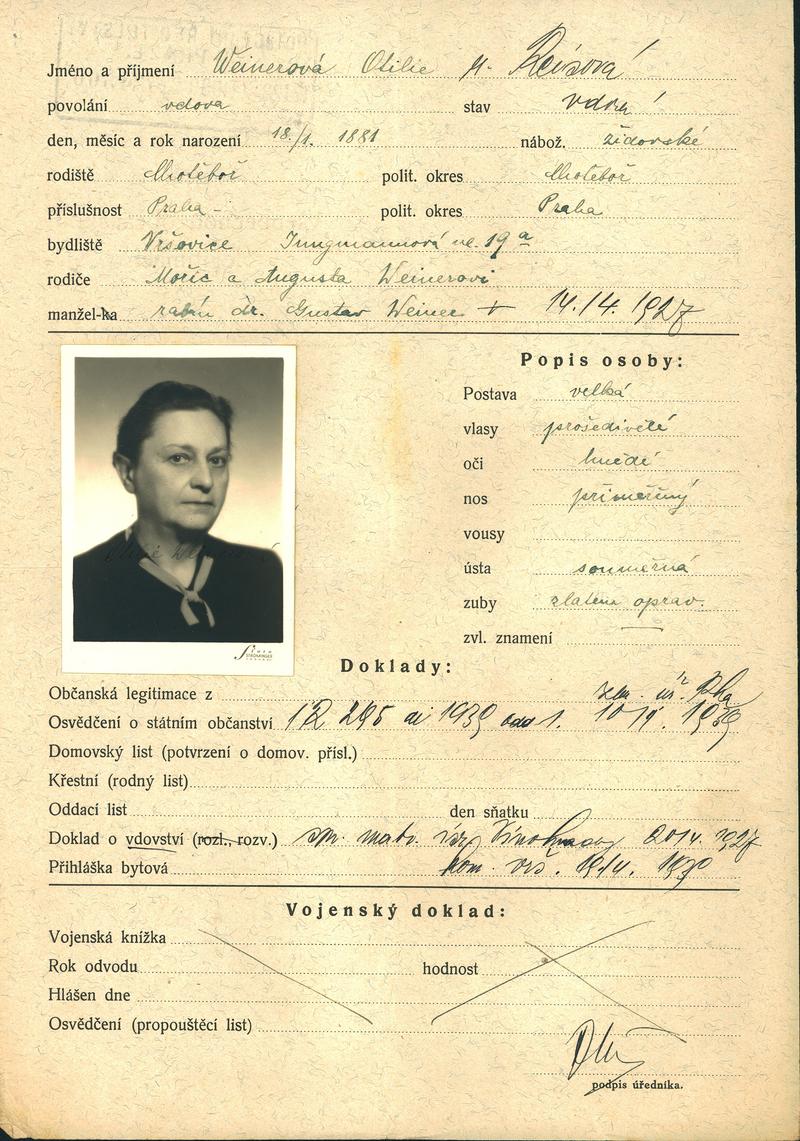 Jméno a příjmení Weinerová Otilie r. Reisová
povolání vdova stav vdova
den, měsíc a rok narození 18./1. 1881 nábož. židovské
rodiště Chotěboř polit. okres Chotěboř
příslušnost Praha - polit. okres Praha
bydliště Vršovice Jungmannová ul. 19a
rodiče Mořic a Augusta Weinerovi
manžel-ka rabín dr. Gustav Weiner + 14./4. 1927
Popis osoby:
Postava velká
vlasy prošedivělé
oči hnědé
nos přiměřený
vousy
ústa souměrná
zuby zlatem oprav.
zvl. znamení —
Foto
STROMINGER
Doklady:
Občanská legitimace z
Osvědčení o státním občanství 12 295 ai 1939 1939
Domovský list (potvrzení o domov. přísl.)
Křestní (rodný list)
Oddací list den sňatku
Doklad o vdovství (rozl., rozv.) matr. Vinohrady 20/4. 1927
Přihláška bytová kom. vrš.
Vojenský doklad:
Vojenská knížka
Rok odvodu hodnost
Hlášen dne
Osvědčení (propouštěcí list)
podpis úředníka.